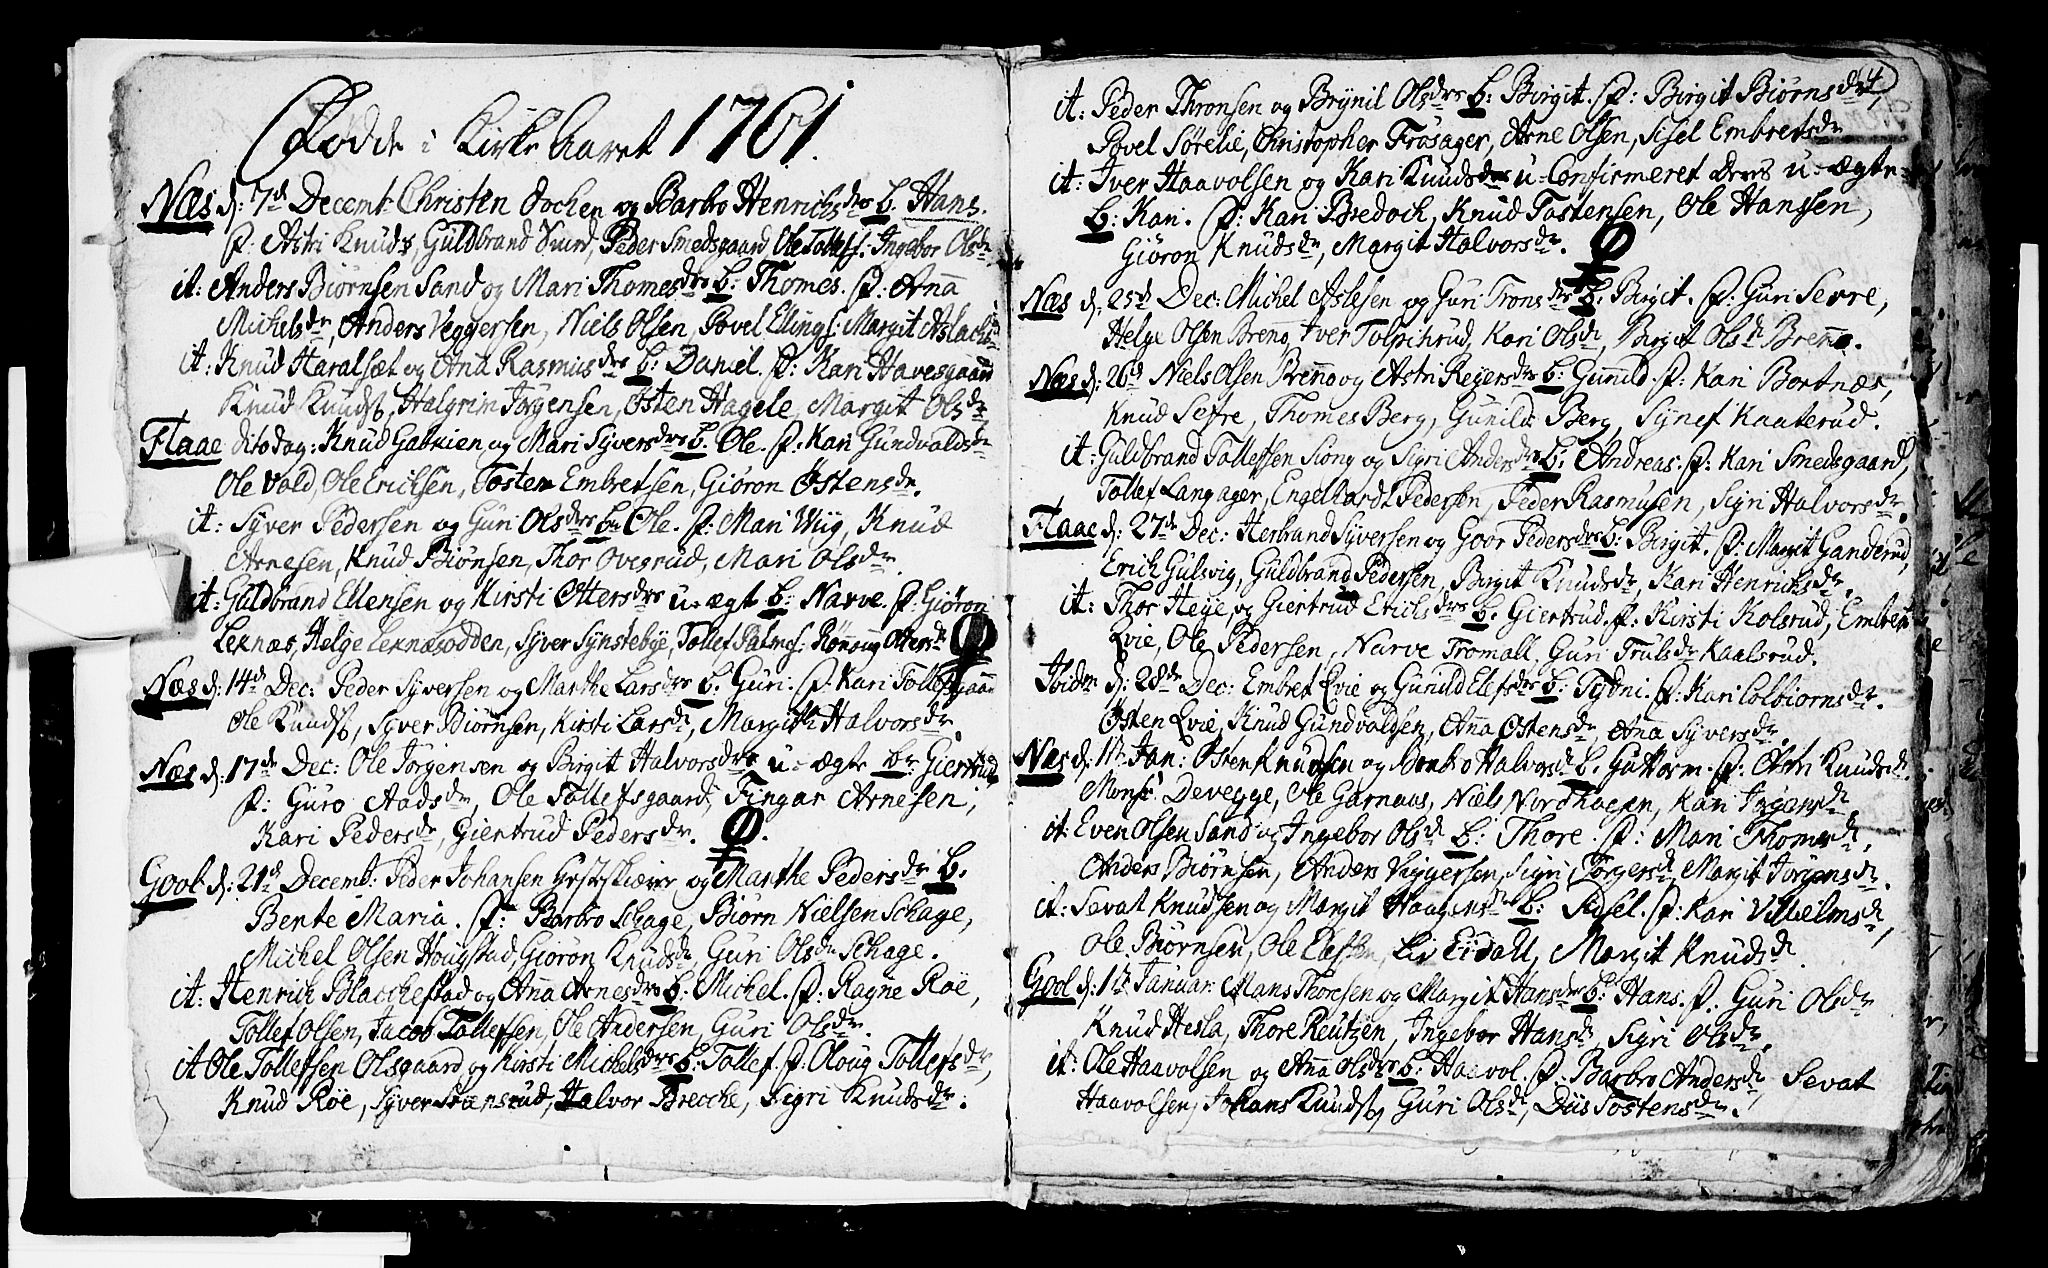 Fødde i Kirke Aaret 1761.
Næs d: 7de Decemb Christen Dochen og Barbro Henrichsdrs B. Hans.
P: Astri Knudsdr, Guldbrand Smed, Peder Smedsgaard, Ole Tollefs: Ingebor Olsdr
it: Anders Biørnsen Sand og Mari Thomesdrs B: Thomes. P: Anna
Michelsdr, Anders Veggersen, Niels Olsen, Povel Ellings: Margit Aslachsdr
it: Knud Haralsæt og Ana Rasmusdrs B: Daniel. P: Kari Havesgaard
Knud Knuds, Halgrim Jørgensen, Østen Hagele, Margit Olsdr
Flaae dito dag: Knud Gabrien og Mari Syversdrs B: Ole. P: Kari Gundvaldsdr
Ole Vold, Ole Erichsen, Tosten Embretsen, Giøron Østensdr.
it: Syver Pedersen og Guri Olsdrs B. Ole. P: Mari Wiig, Knud
Arnesen, Knud Biønsen, Thor Ovegrud, Mari Olsdr.
it: Guldbrand Ellensen og Kirsti Ottersdrs u-ægt B: Narve. P: Giøron
Leknæs, Helge Leknæsodden, Syver Synstebye, Tollef Palmes: Rønnaug Ottersdr
Næs d: 14de Dec: Peder Syversen og Marthe Larsdrs B. Guri. P. Kari Tollefsgaard
Ole Knuds, Syver Biørnsen, Kirsti Larsdr, Margith Halvorsdr.
Næs d: 17de Dec: Ole Jørgensen og Birgit Halvorsdrs u-ægte B: Giertrud
P: Guro Aadsdr, Ole Tollefsgaard, Fingar Arnesen,
Kari Pedersdr, Giertrud Pedersdr.
Gool d: 21de Decemb: Peder Johansen og Marthe Pedersdr B.
Bente Maria. P: Barbro Schage, Biørn Nielsen Schage,
Michel Olsen Hougstad, Giøron Knudsdr, Guri Olsdr Schage.
it: Henrich Blacchestad og Ana Arnesdrs B: Michel. P: Ragne Røe,
Tollef Olsen, Jacob Tollefsen, Ole Andersen, Guri Olsdr.
it Ole Tollefsen Olsgaard og Kirsti Michelsdrs B: Tollef. P: Oloug Tollefsdr,
Knud Røe, Syver Stensrud, Halvor Brecche, Sigri Knudsdr.
4
it: Peder Thronsen og Brynil Olsdrs B: Birgit. P: Birgit Biørnsdr,
Povel Sørelie, Christopher Frøsager, Arne Olsen, Sisel Embretsdr
it: Iver Haavolsen og Kari Knudsdrs u-Confirmeret Deres u-ægte
B: Kari. P: Kari Bredoch, Knud Tostensen, Ole Hanssen,
Giøron Knudsdr, Margit Halvorsdr.
Næs d: 25de Dec: Michel Aslesen og Guri Tronsdrs B. Birgit. P: Guri Sevre,
Helge Olsen Breno, Iver Tolpihrud, Kari Olsdr, Birgit Olsdr Breno.
Næs d: 26de Niels Olsen Breno og Astri Regersdrs B: Gunild. P: Kari Bortnæs,
Knud Sefre, Thomes Berg, Gunild Berg, Synef Kaaterud.
it: Guldbrand Tollefsen Siong og Sigri Andersdrs B. Andreas. P: Kari Smedsgaard,
Tollef Langager, Engelhardt Pedersen, Peder Rasmusen, Sigri Halvorsdr.
Flaae d: 27de Dec: Herbrand Syversen og Goor Pedersdrs B: Birgit. P: Margit Ganderud,
Erich Gulsvig, Guldbrand Pedersen, Birgit Knudsdr, Kari Henrichsdr.
it: Thor Heye, og Giertrud Erichsdrs B. Giertrud. P. Kirsti Kolsrud, Embret
Evie, Ole Pedersen, Narve Tromall, Guri Trulsdr Kaalsrud.
Ibidm d: 28de Dec: Embret Evie og Gunild Elefsdrs B: Tydni. P: Kari Colbiørnsdr.
Østen Evie, Knud Gundvaldsen, Anna Østensdr, Ana Syversdr.
Næs d: 11te Jan: Østen Knudsen og Barbro Halvorsdr B. Guttorm. P: Astri Knudsdr.
Monsr Devegge, Ole Garnaas, Niels Nordhagen, Kari Jørgensdr
it: Even Olsen Sand og Ingebor Olsdr B: Thore. P: Mari Thomesdr,
Anders Biørnsen, Anders Viggersen, Sigri Torgersdr, Margit Jørgensdr.
it: Sevat Knudsen og Margit Haagensdr B: Sidsel. P: Kari Vilhelmsdr,
Ole Biørnsen, Ole Elefsen, Liv Eidall, Margit Knudsdr
Gool d: 17de Januar: Mans Thoresen og Margit Hansdrs B: Hans. P: Guri Olsdr
Knud Hesla, Thore Reutzen, Ingebor Hansdr, Sigri Olsdr.
it: Ole Haavolsen og Ana Olsdrs B: Haavol. P: Barbro Andersdr, Sevat
Haavolsen, Johans Knuds, Guri Olsdr, Diis Tostensdr.